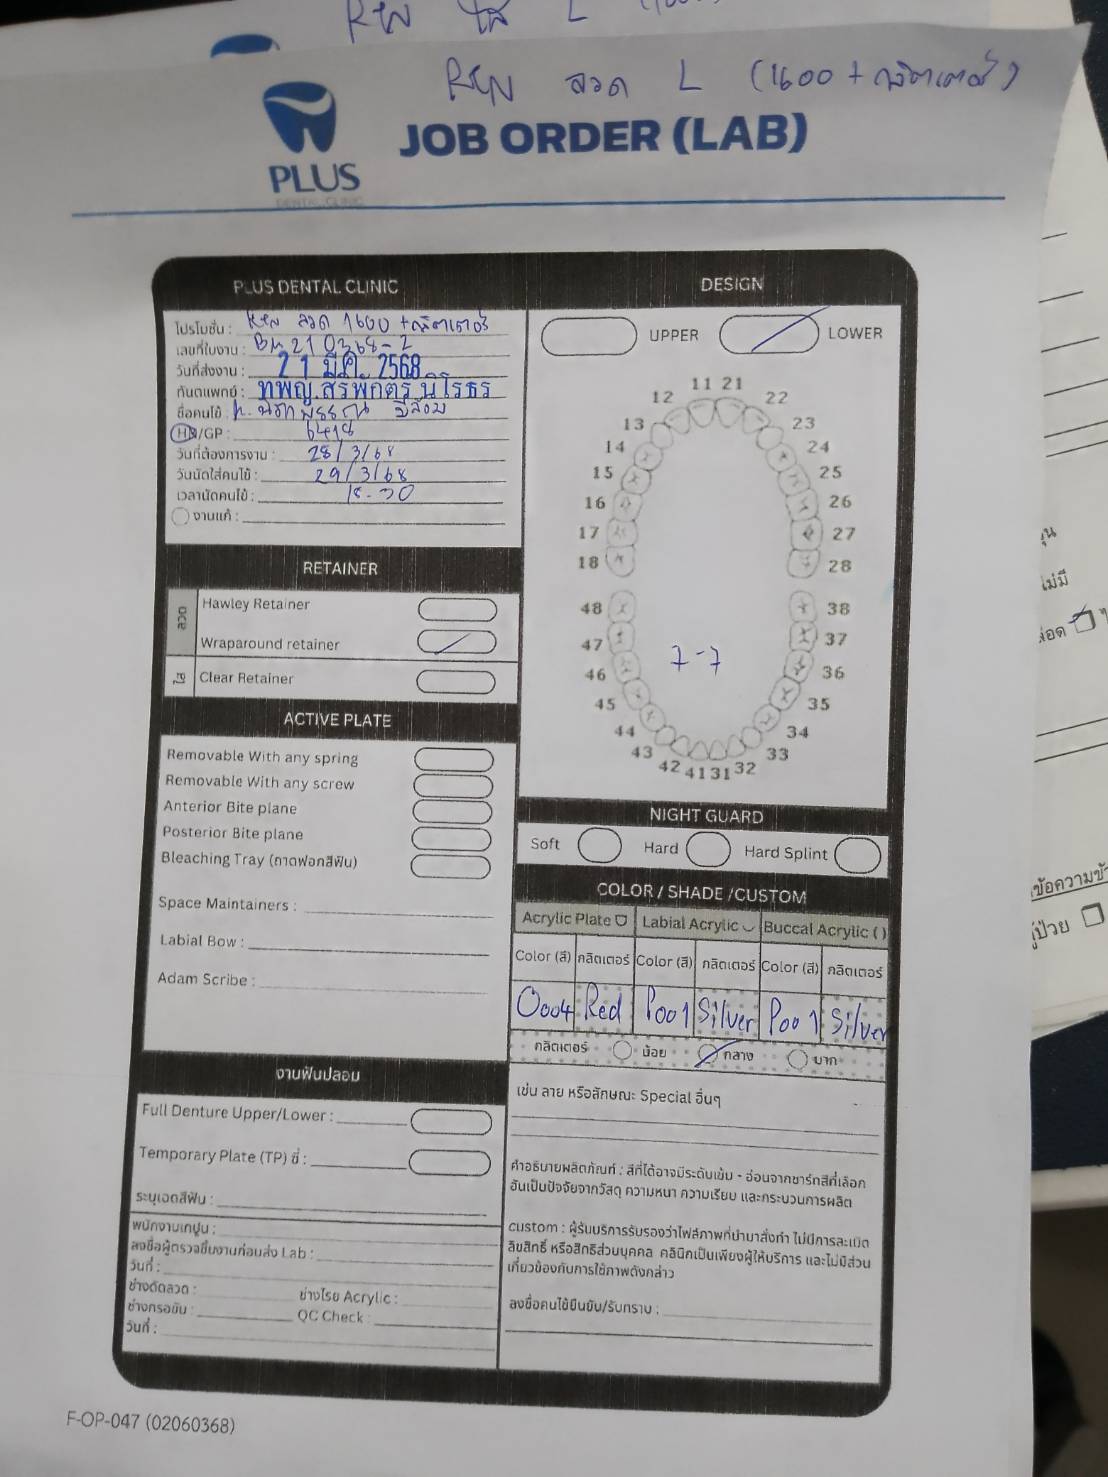 L
ลวด L (1600 + กลิตเตอร์)
PLUS
DENTAL CLINIC
JOB ORDER (LAB)
PLUS DENTAL CLINIC
โปรโมชั่น : ลวด 1600 + กลิตเตอร์
เลขที่ใบงาน : BM210368-2
วันที่ส่งงาน : 21 มี.ค. 2568
ทันตแพทย์ : ทพญ.สรพักตร์ นิโรธร
ชื่อคนไข้ :
HN/GP : 6418
วันที่ต้องการงาน : 28/3/68
วันนัดใส่คนไข้ : 29/3/68
เวลานัดคนไข้ :
งานแก้ :
RETAINER
ลวด
Hawley Retainer
Wraparound retainer
ใส
Clear Retainer
ACTIVE PLATE
Removable With any spring
Removable With any screw
Anterior Bite plane
Posterior Bite plane
Bleaching Tray (ถาดฟอกสีฟัน)
Space Maintainers :
Labial Bow :
Adam Scribe :
งานฟันปลอม
Full Denture Upper/Lower :
Temporary Plate (TP) ซี่ :
ระบุเฉดสีฟัน :
พนักงานเทปูน :
ลงชื่อผู้ตรวจชิ้นงานก่อนส่ง Lab :
วันที่ :
ช่างดัดลวด : ช่างโรย Acrylic :
ช่างกรอขัด : QC Check :
วันที่ :
DESIGN
UPPER LOWER
11 21
12 22
13 23
14 24
15 25
16 26
17 27
18 28
48 38
47 37
7-7
46 36
45 35
44 34
43 33
42 41 31 32
NIGHT GUARD
Soft Hard Hard Splint
COLOR / SHADE /CUSTOM
Acrylic Plate Labial Acrylic Buccal Acrylic ( )
Color (สี) กลิตเตอร์ Color (สี) กลิตเตอร์ Color (สี) กลิตเตอร์
O004 Red P001 Silver P001 Silver
กลิตเตอร์ น้อย กลาง มาก
เช่น ลาย หรือลักษณะ Special อื่นๆ
คำอธิบายผลิตภัณฑ์ : สีที่ได้อาจมีระดับเข้ม - อ่อนจากชาร์ทสีที่เลือก
อันเป็นปัจจัยจากวัสดุ ความหนา ความเรียบ และกระบวนการผลิต
custom : ผู้รับบริการรับรองว่าไฟล์ภาพที่นำมาสั่งทำ ไม่มีการละเมิด
ลิขสิทธิ์ หรือสิทธิส่วนบุคคล คลินิกเป็นเพียงผู้ให้บริการ และไม่มีส่วน
เกี่ยวข้องกับการใช้ภาพดังกล่าว
ลงชื่อคนไข้ยืนยัน/รับทราบ :
F-OP-047 (02060368)
ไม่มี